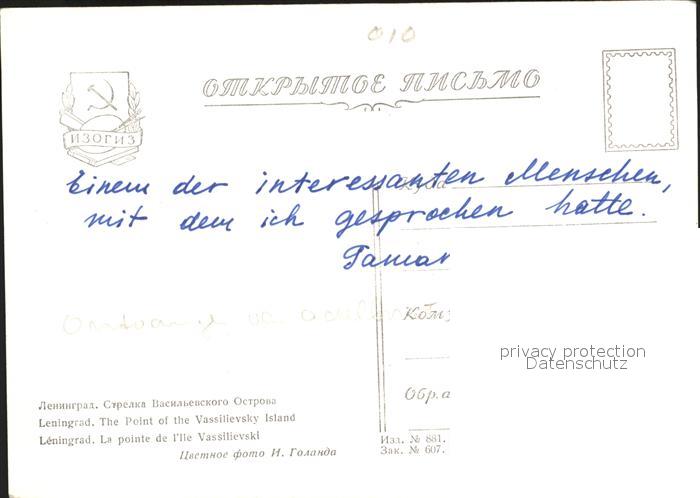 010
ОТКРЫТОЕ ПИСЬМО
ИЗОГИЗ
Einem der interessanten Menschen,
mit dem ich gesprochen hatte.
Tamar
Куда
Кому
Обр. а
privacy protection
Datenschutz
Ленинград. Стрелка Васильевского Острова
Leningrad. The Point of the Vassilievsky Island
Léningrad. La pointe de l'Ile Vassilievski
Цветное фото И. Голанда
Изд. № 881.
Зак. № 607.